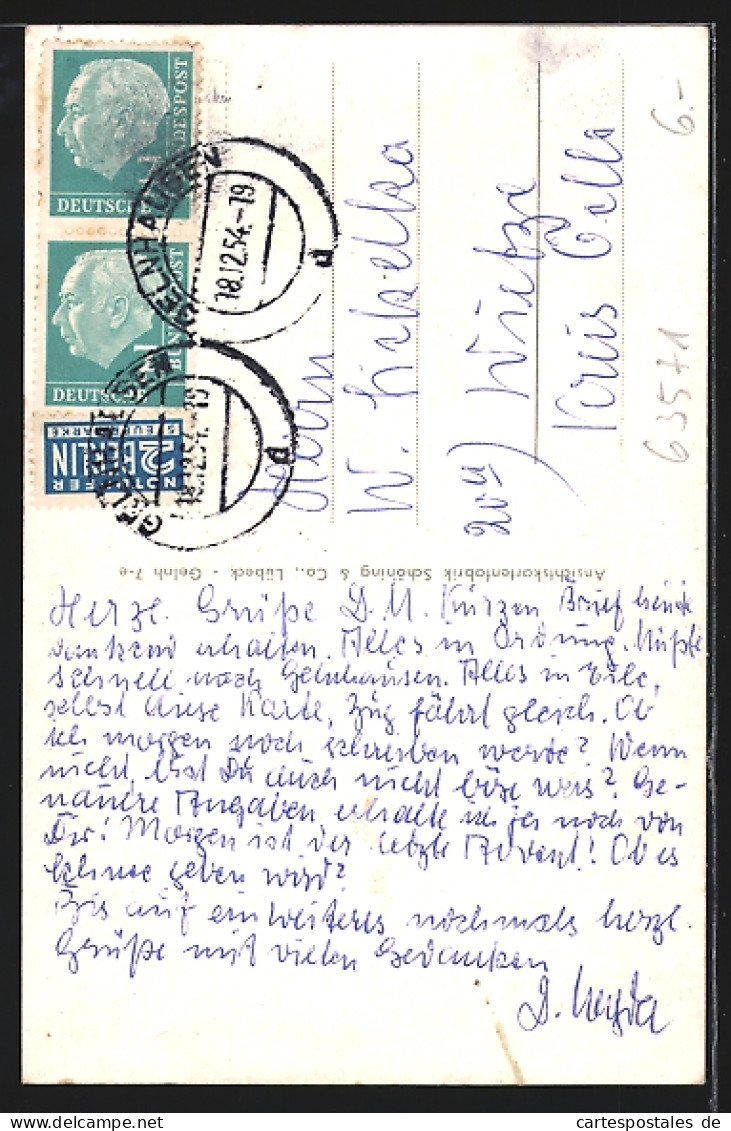 DEUTSCHE
BUNDESPOST
DEUTSCHE
BUNDESPOST
NOTOPFER
2 BERLIN
STEUERMARKE
GELNHAUSEN
18.12.54.-19
d
GELNHAUSEN
18.12.54.-19
d
Herrn
W.
20a) Wietze
Kreis Celle
6.-
63571
Ansichtskartenfabrik Schöning & Co., Lübeck - Gelnh 7-e
Herzl. Grüße D. M. Kurzen Brief heute
dankend erhalten. Alles in Ordnung. Mußte
schnell nach Gelnhausen. Alles in Eile,
selbst diese Karte, Zug fährt gleich. Ob
ich morgen noch schreiben werde? Wenn
nicht, bist Du auch nicht böse was? Ge-
nauere Angaben erhalte ich ja noch von
Dir! Morgen ist der letzte Advent! Ob es
Schnee geben wird?
Bis auf ein weiteres nochmals herzl.
Grüße mit vielen Gedanken
D.
www.delcampe.net
cartespostales de